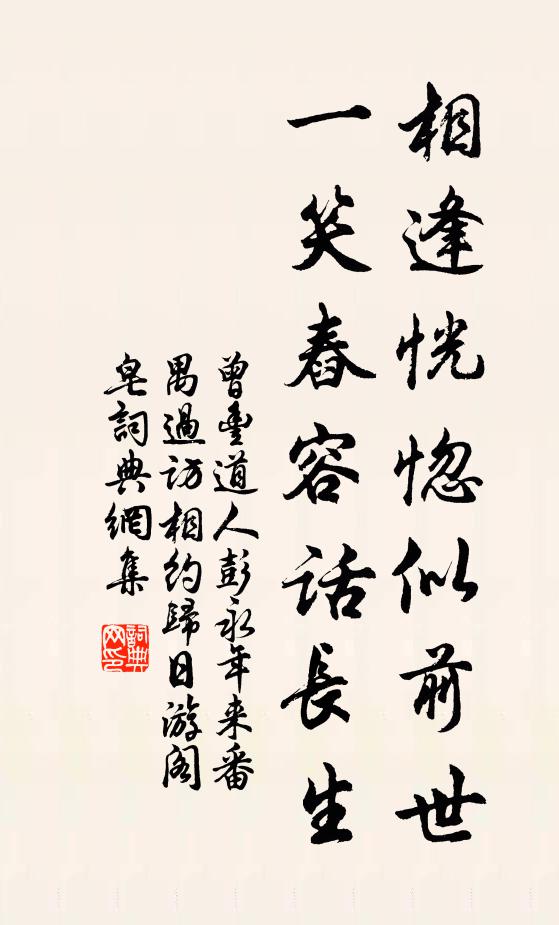 相逢恍惚似前世
一笑舂容話長生
曾豐道人彭永年来番
禺過訪相約歸日游阁
皂詞典網集
詞典
网印